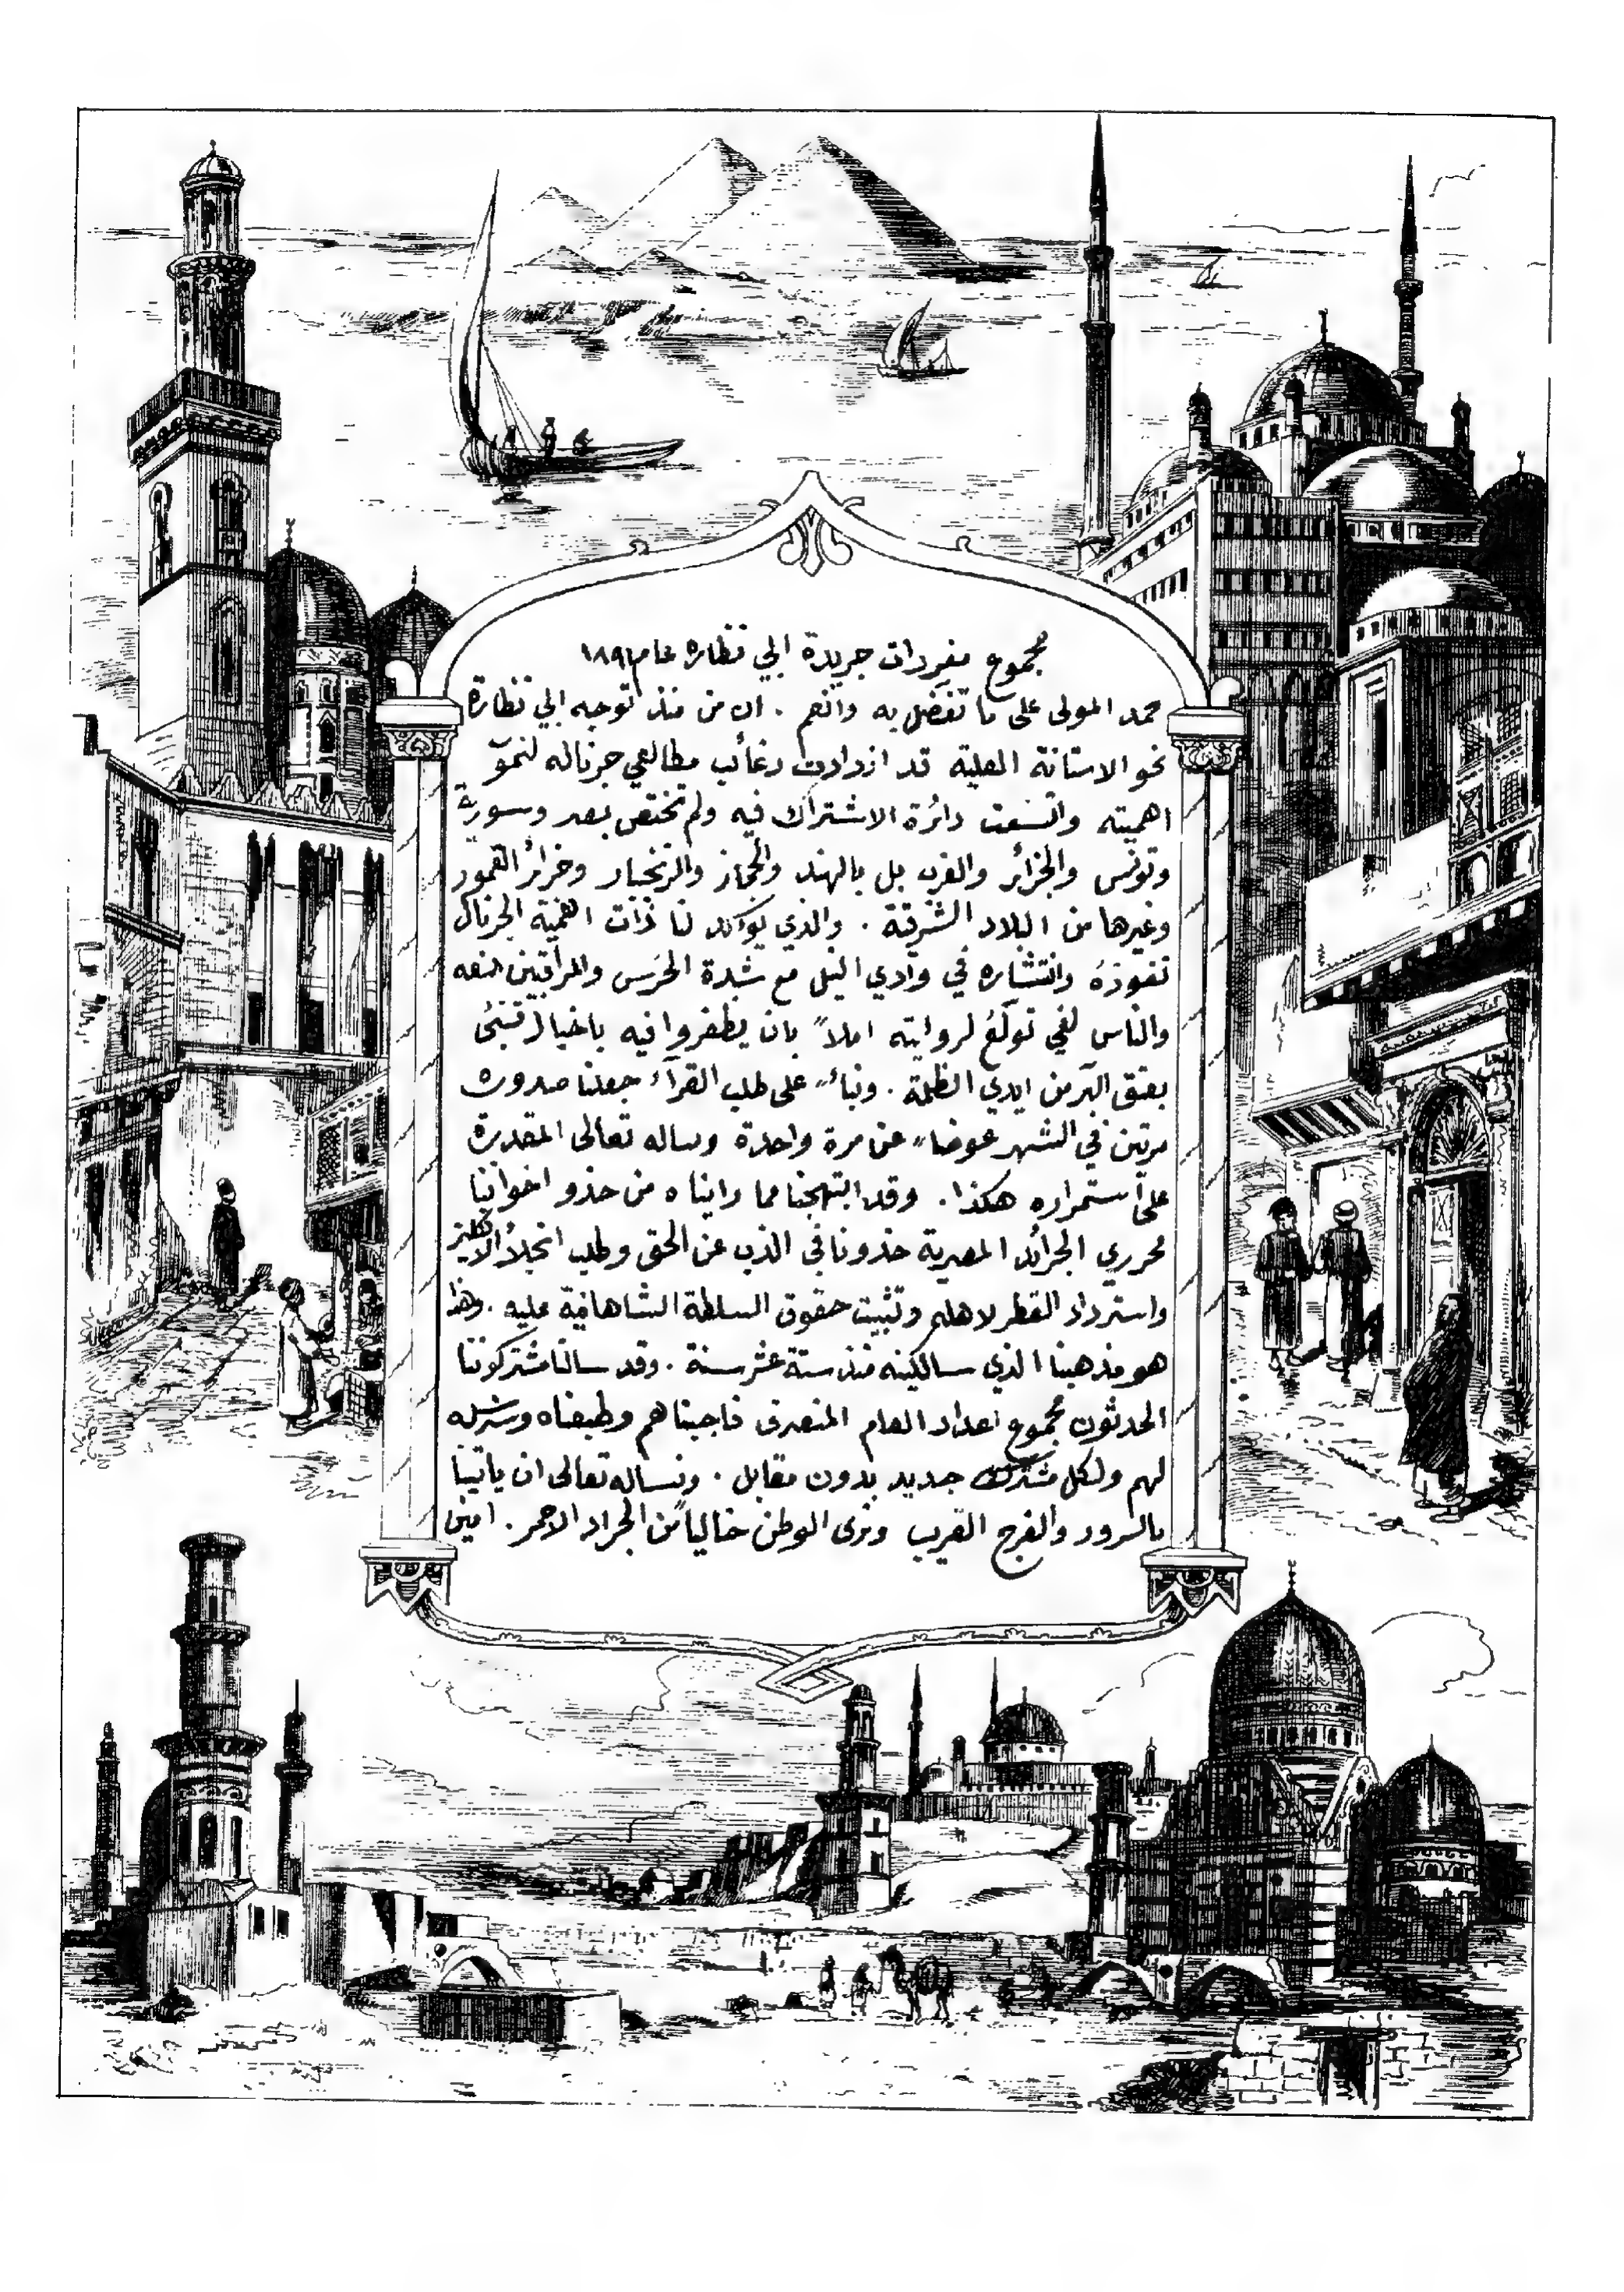 مجموع مفردات جريدة ابي نظاره عام ١٨٩١
نحمد المولى على ما تفضل به وانعم . ان من منذ توجه ابي نظارة
نحو الاستانة العلية قد ازدادت رغائب مطالعي جرناله لنموّ
اهميته واتسعت دائرة الاشتراك فيه ولم تختص بمصر وسورية
وتونس والجزائر والغرب بل بالهند والحجاز والزنجبار وجزائر القمور
وغيرها من البلاد الشرقية . والذي يوكد لنا ذات اهمية الجرنال
نفوذهُ وانتشاره في وادي النيل مع شدة الحرس والمراقبين لمنعه
والناس لفي تولّع لروايته املاً بان يظفروا فيه باخبار تنبئ
بعتق البر من ايدي الظلمة . وبناءً على طلب القرآء جعلنا صدوره
مرتين في الشهر عوضاً عن مرة واحدة ونساله تعالى المقدرة
على استمراره هكذا . وقد ابتهجنا مما رايناه من حذو اخواننا
محرري الجرائد المصرية حذونا في الذب عن الحق وطلب انجلاء الانكليز
واسترداد القطر لاهله وتثبيت حقوق السلطة الشاهانية عليه . وهذا
هو مذهبنا الذي سالكينه منذ ستة عشر سنة . وقد سالنا مشتركوننا
الحدثون مجموع اعداد العام المنصرف فاجبناهم وطبعناه ونرسله
لهم ولكل مشترك جديد بدون مقابل . ونساله تعالى ان ياتينا
بالسرور والفرج القريب ونرى الوطن خالياً من الجراد الاحمر . امين